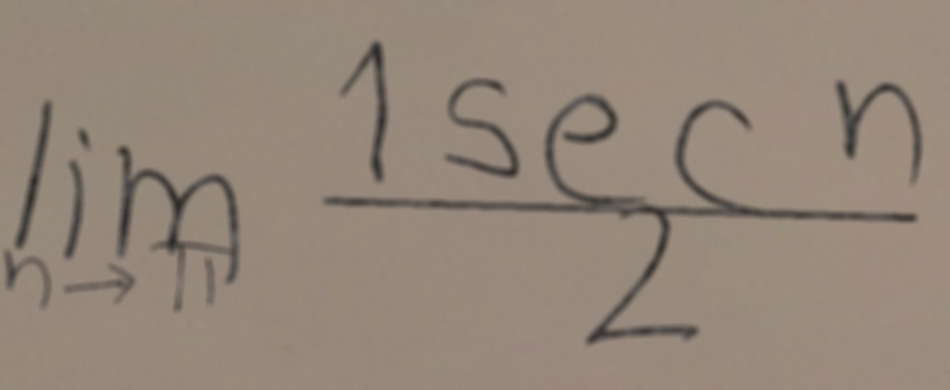 lim n→π 1 sec n / 2